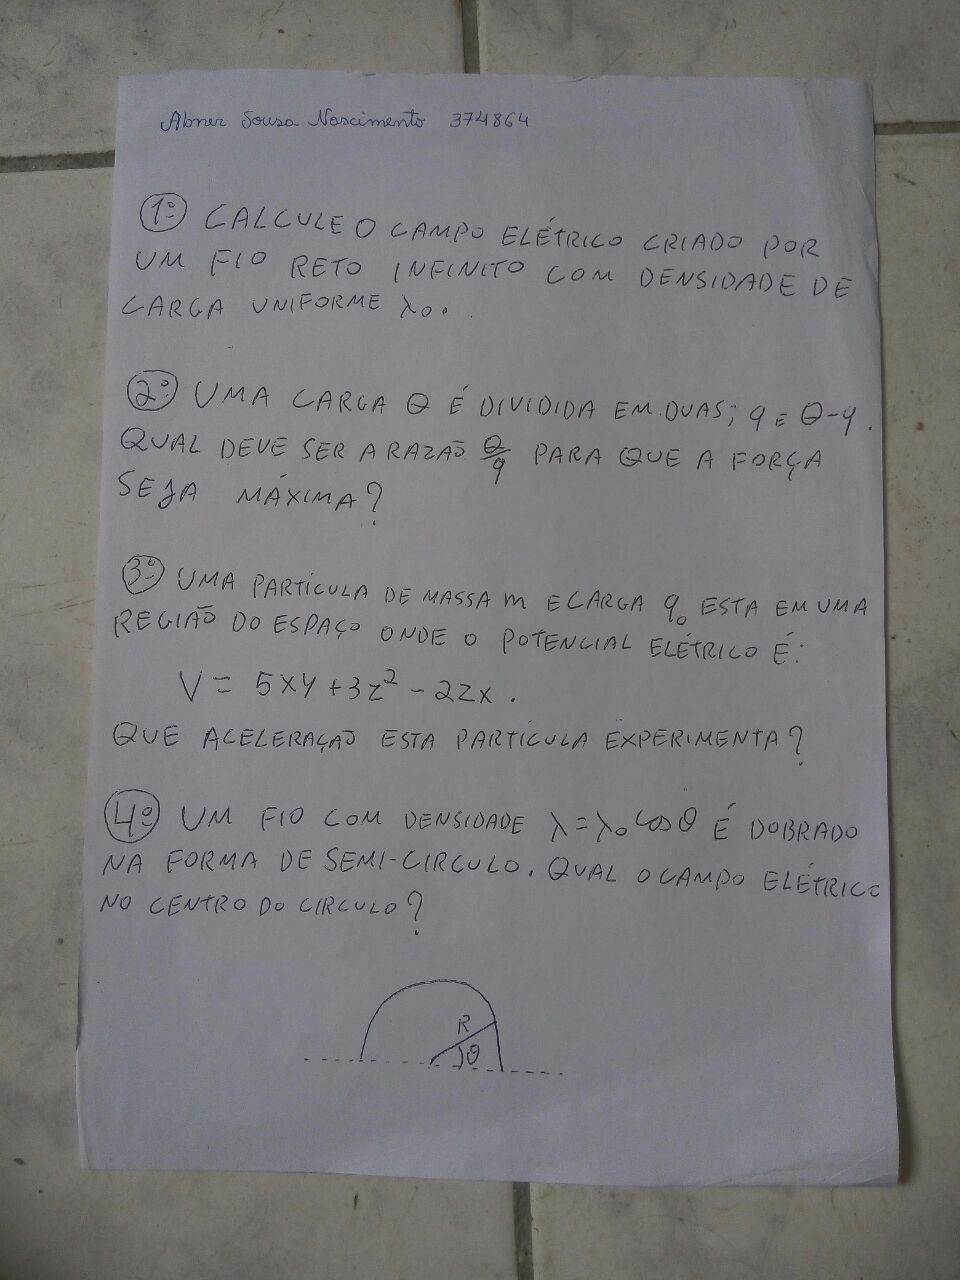 Abner Sousa Nascimento 374864
1º CALCULE O CAMPO ELÉTRICO CRIADO POR
UM FIO RETO INFINITO COM DENSIDADE DE
CARGA UNIFORME λ₀.
2º UMA CARGA Q É DIVIDIDA EM DUAS; q E Q-q.
QUAL DEVE SER A RAZÃO Q/q PARA QUE A FORÇA
SEJA MÁXIMA?
3º UMA PARTÍCULA DE MASSA m E CARGA q₀ ESTA EM UMA
REGIÃO DO ESPAÇO ONDE O POTENCIAL ELÉTRICO É:
V = 5xy + 3z² - 2zx.
QUE ACELERAÇÃO ESTA PARTÍCULA EXPERIMENTA?
4º UM FIO COM DENSIDADE λ=λ₀ cos θ É DOBRADO
NA FORMA DE SEMI-CIRCULO. QUAL O CAMPO ELÉTRICO
NO CENTRO DO CIRCULO?
R
θ